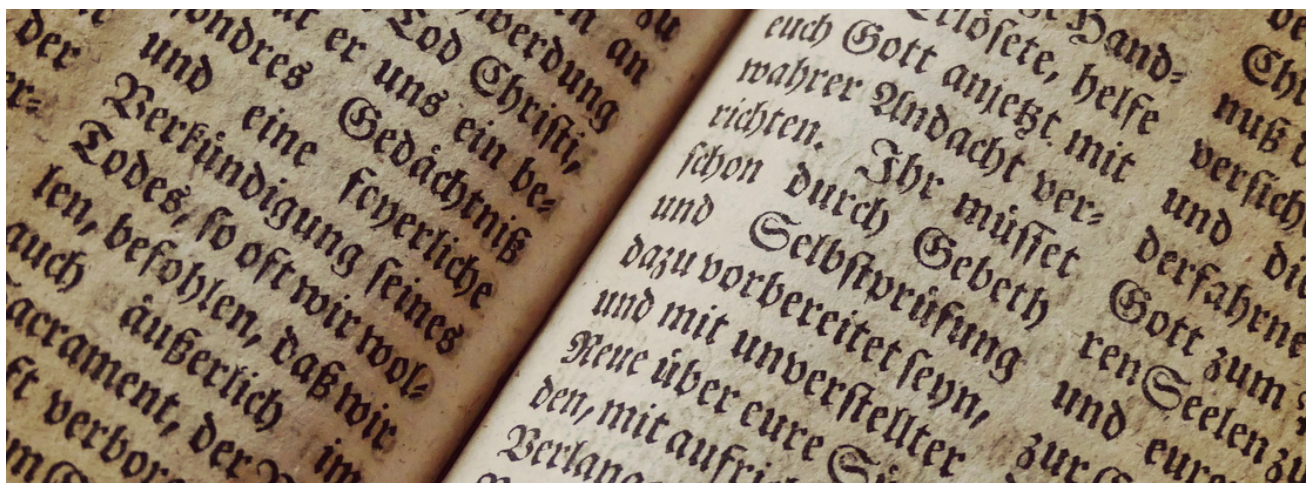 zu
an
werdung
Tod Christi,
er uns ein be-
ondres Gedächtniß
und eine feyerliche
Verkündigung seines
Todes, so oft wir wol-
len, befohlen, daß wir
auch äußerlich im
acrament, der
ft verbor
der
er-
Hand-
Erlösete, helfe
euch Gott anjetzt mit
wahrer Andacht ver-
richten. Ihr müsset
schon durch Gebeth
und Selbstprüfung
dazu vorbereitet seyn,
und mit unverstellter
Reue über eure Sü
den, mit aufri
Verlang
Chr
nuß
versich
und die
derfahrne
Gott zum
ren Seelen zu
und eure
zur